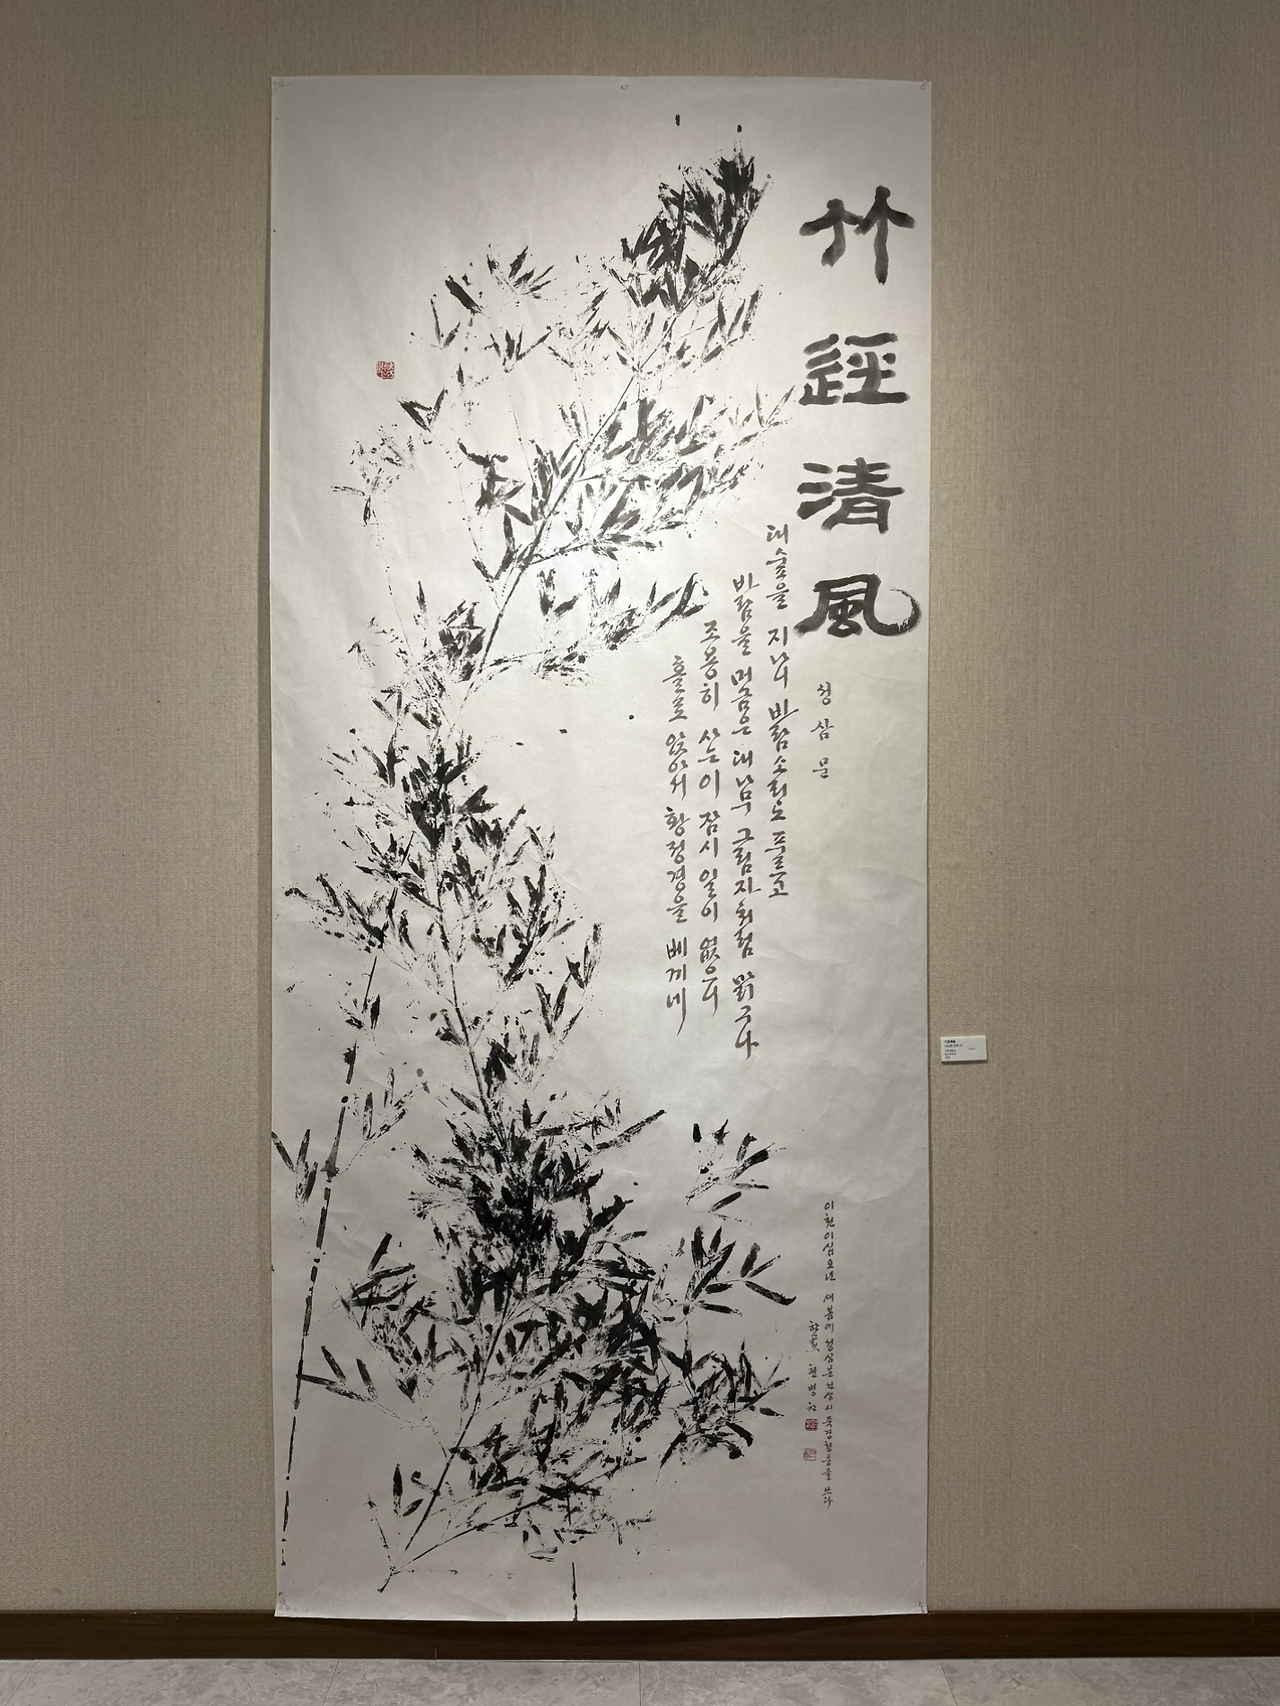 竹逕清風
성삼문
대숲을 지나니 바람소리도 푸르고
바람을 머금은 대나무 그림자처럼 맑구나
조용히 사는 이 잠시 일이 없으니
홀로 앉아서 황정경을 베끼네
이천이십오년 새봄에 성삼문선생시 죽경청풍을 쓰다